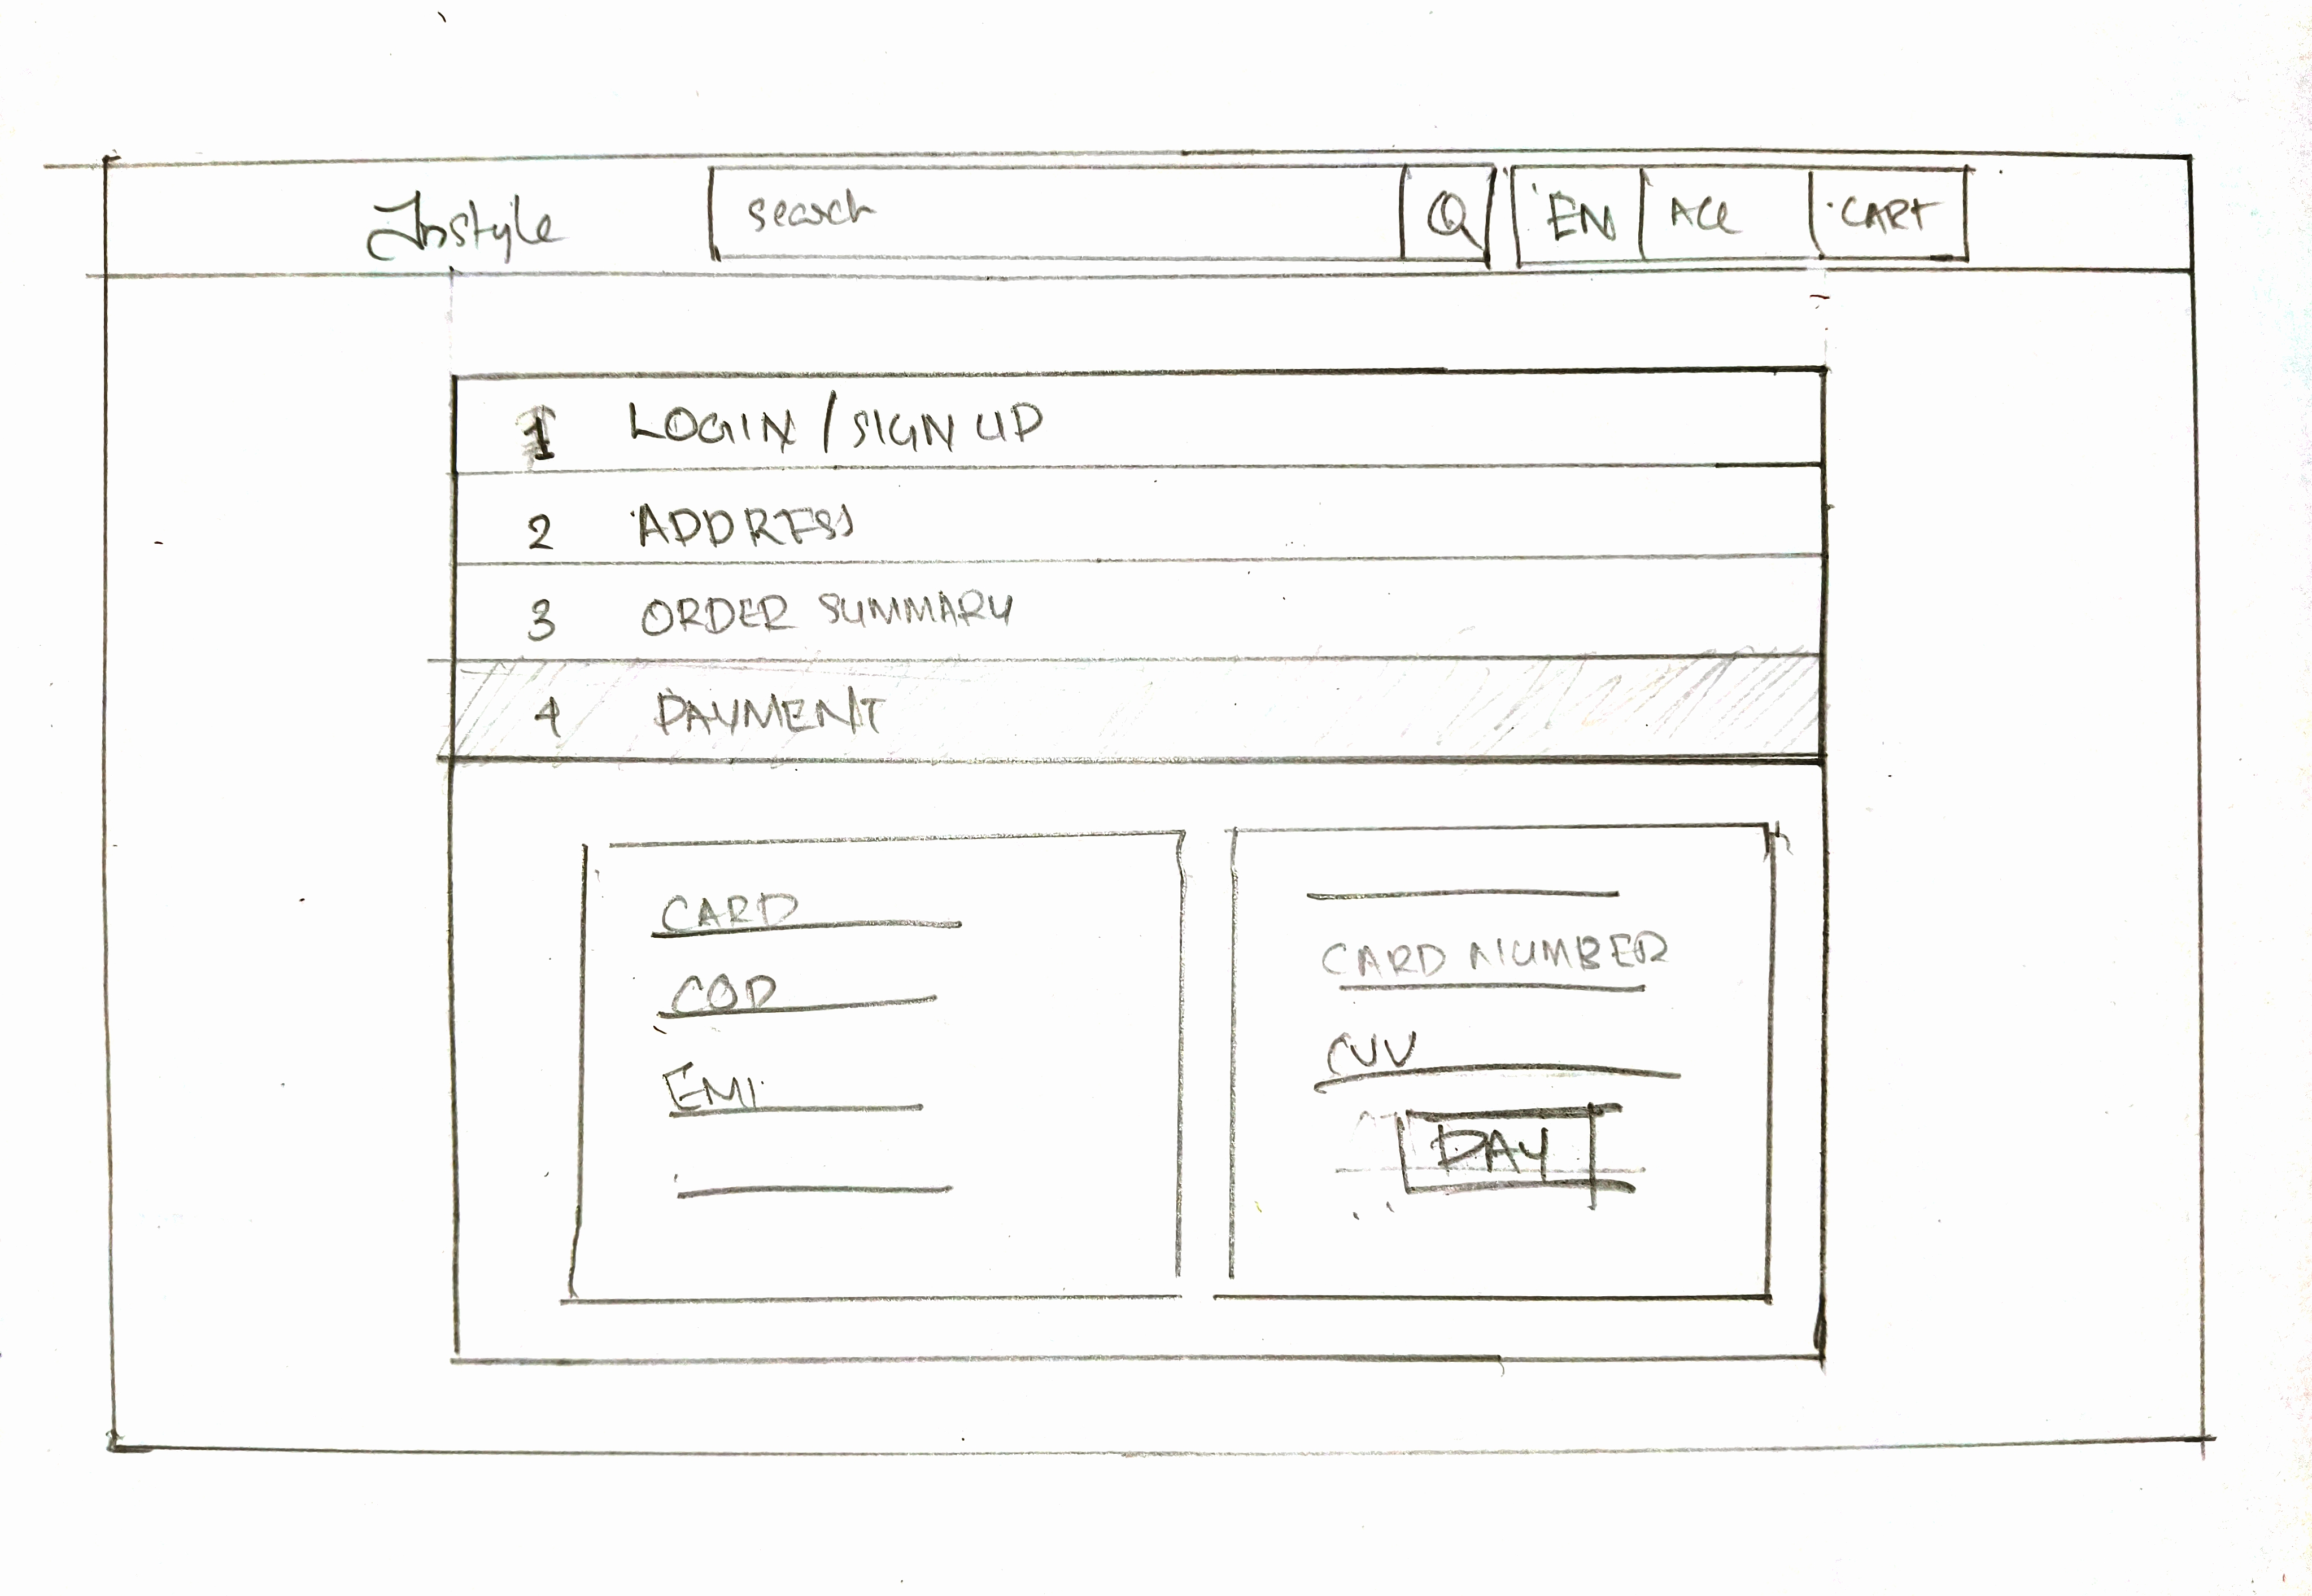 Instyle search Q EN ACC CART
1 LOGIN / SIGN UP
2 ADDRESS
3 ORDER SUMMARY
4 PAYMENT
CARD
COD
EMI
CARD NUMBER
CVV
PAY